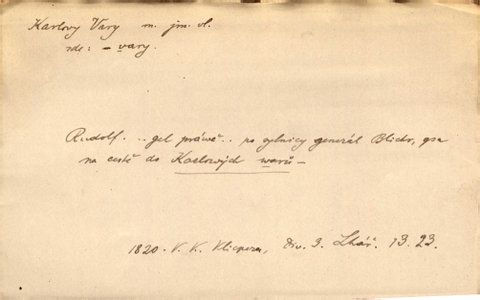 Karlovy Vary m. jm. vl.
zde: – vary.
Rudolf. .. gel práwě .. po sylnicy generál Blichr, gsa
na cestě do Karlowých warů –
1820. V. K. Klicpera, Div. 3. Lhář. 13.23.